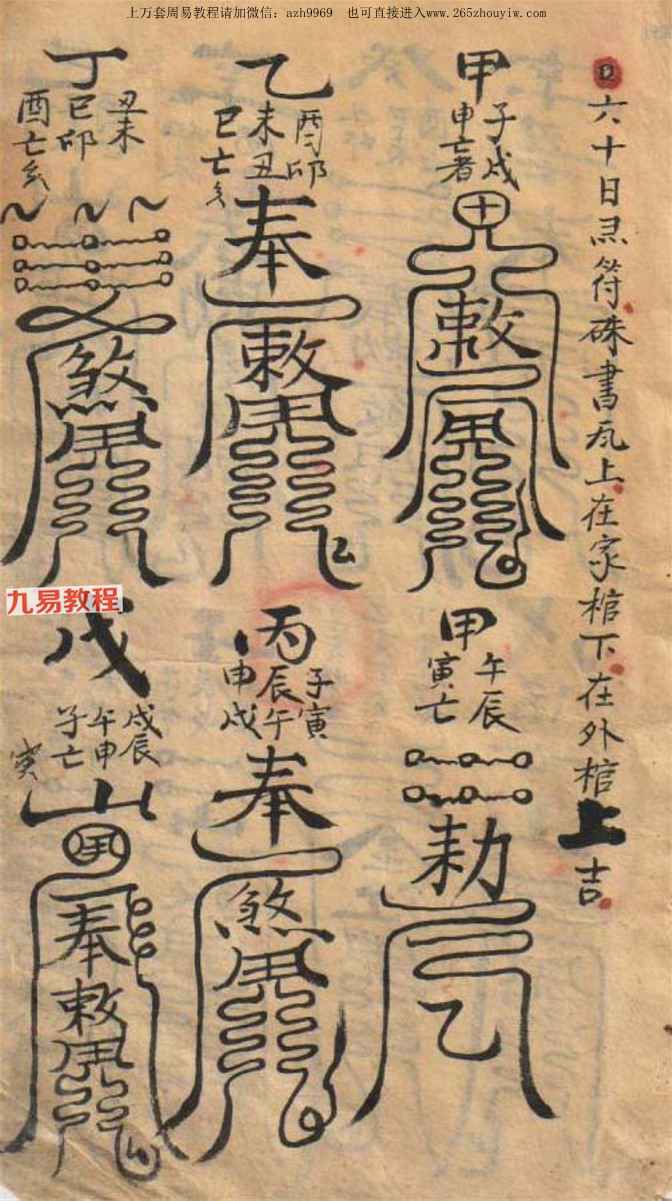 上万套周易教程请加微信：azh9969　也可直接进入www.265zhouyiw.com
六十日 符硃書瓦上在家棺下在外棺上吉
甲
子戌
申亡者
敕
乙
酉卯
未丑
巳亡亥
奉
敕
丁
丑未
巳卯
酉亡亥
煞
甲
午辰
寅亡
敕
乙
丙
子寅
辰午
申戌
奉
煞
戊
戌辰
午申
子亡
寅
奉
敕
九易教程